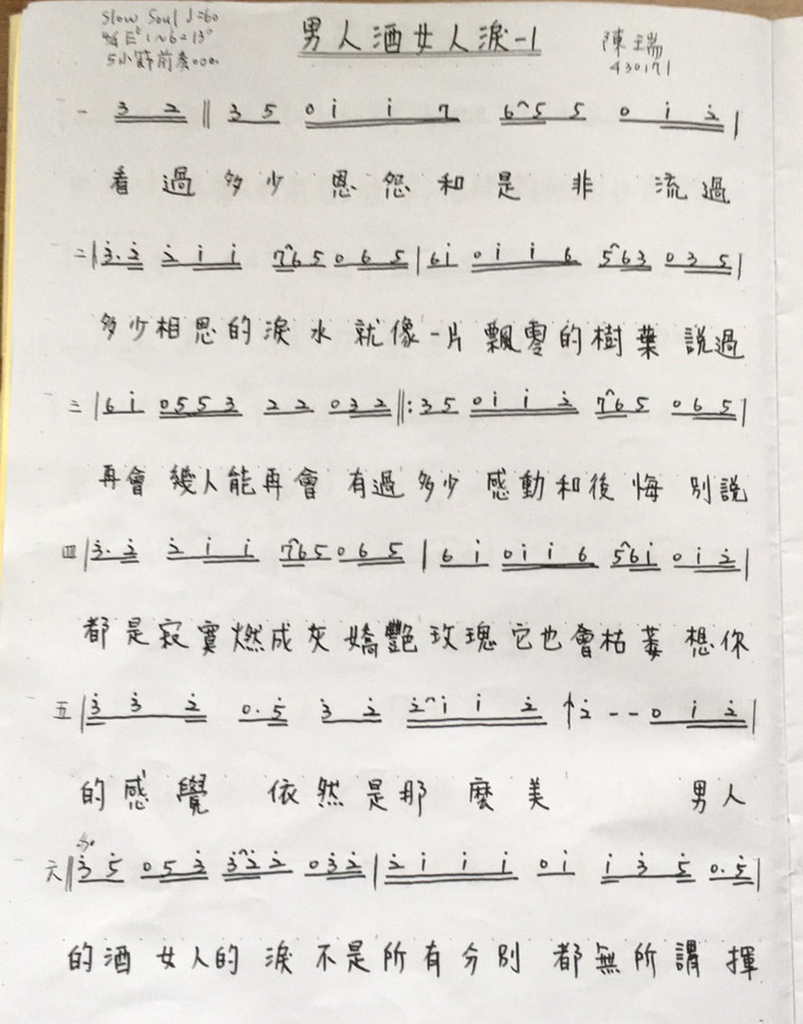 Slow Soul ♩=60
男人酒女人淚-1
陳瑞
4/4
5小節前奏
430171
一 3 2 ‖ 3 5 0 i i 7 6 5 5 0 i 2̇ |
看過多少恩怨和是非 流過
二 | 3̇. 2̇ 2̇ i i 7 6 5 0 6 5 | 6 i 0 i i 6 5 6 3 0 3 5 |
多少相思的淚水就像一片飄零的樹葉說過
三 | 6 i 0 5 5 3 2 2 0 3 2 ‖: 3 5 0 i i 2̇ 7 6 5 0 6 5 |
再會幾人能再會有過多少感動和後悔別說
四 | 3̇. 2̇ 2̇ i i 7 6 5 0 6 5 | 6 i 0 i i 6 5 6 i 0 i 2̇ |
都是寂寞燃成灰嬌艷玫瑰它也會枯萎想你
五 | 3̇ 3̇ 2̇ 0. 5̇ 3̇ 2̇ 2̇ i i 2̇ ↑ 2̇ - - 0 i 2̇ |
的感覺依然是那麼美 男人
六 ‖ 3̇ 5̇ 0 5 3̇ 3̇ 2̇ 2̇ 0 3̇ 2̇ | 2̇ i i i 0 i i 3̇ 5̇ 0. 5̇ |
的酒女人的淚不是所有分別都無所謂揮